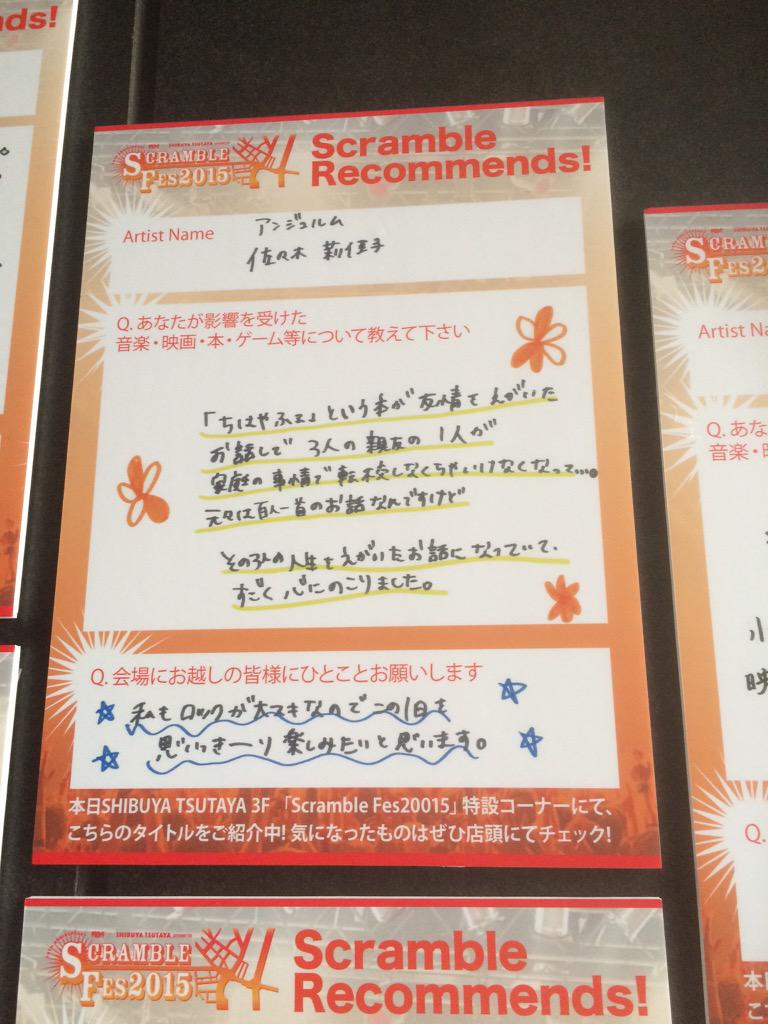 ds!
SHIBUYA TSUTAYA
SCRAMBLE
FES2015
Scramble
Recommends!
Artist Name
アンジュルム
佐々木 莉佳子
Q. あなたが影響を受けた
音楽・映画・本・ゲーム等について教えて下さい
「ちはやふる」という本が友情をえがいた
お話しで 3人の親友の1人が
家庭の事情で転校しなくちゃいけなくなって…。
元々は百人一首のお話なんですけど
その3人の人生をえがいたお話になっていて、
すごく心にのこりました。
Q. 会場にお越しの皆様にひとことお願いします
私もロックが大スキなのでこの1日を
思いっきーり楽しみたいと思います。
本日SHIBUYA TSUTAYA 3F 「Scramble Fes20015」特設コーナーにて、
こちらのタイトルをご紹介中! 気になったものはぜひ店頭にてチェック!
SHIBUYA TSUTAYA
SCRAMBLE
FES2015
Scramble
Recommends!
SCRAM
FES2
Artist Na
Q. あな
音楽・映
小
映
Q.
本日
こ